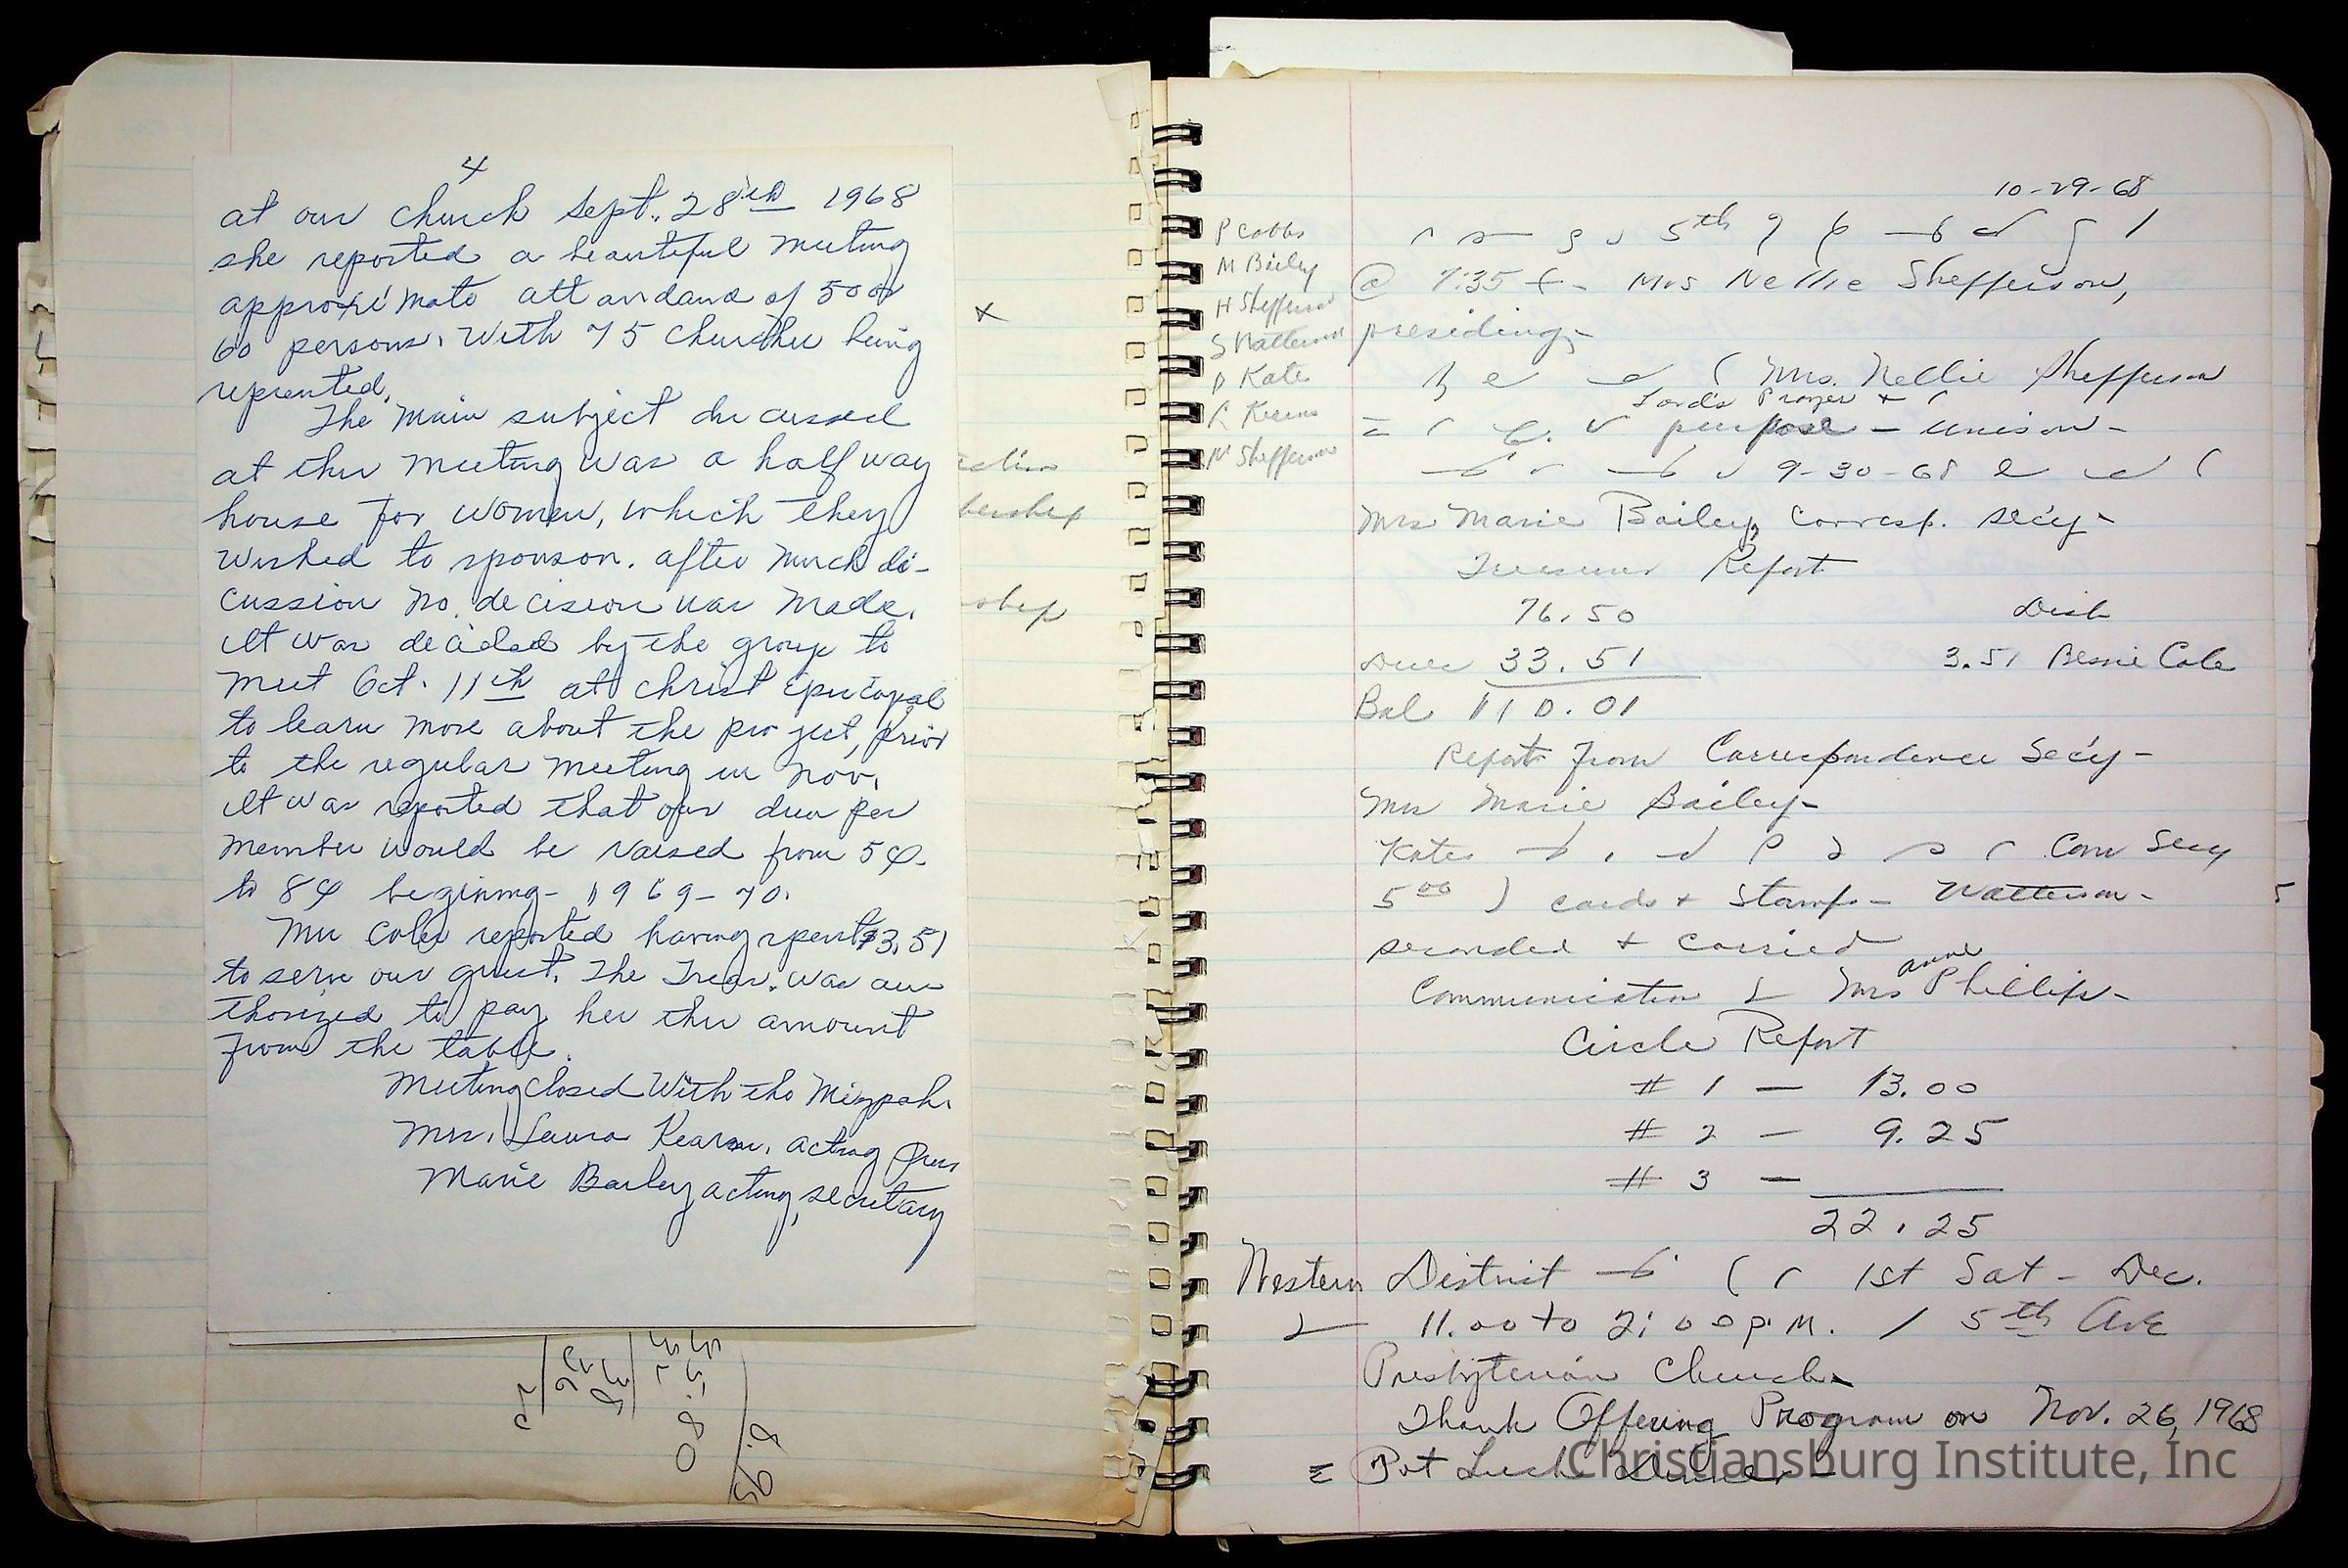 4
at our church Sept. 28th 1968
she reported a beautiful meeting
approxi mate att andance of 50 or
60 persons. With 75 churches being
reprented.
The main subject discussed
at this meeting was a half way
house for women, which they
wished to sponson. after much di-
cussion no decision was made.
It was decided by the group to
meet Oct. 11th at Christ Episcopal
to learn more about the project, prior
to the regular meeting in nov.
It was reported that our dues per
member would be raised from 5¢
to 8¢ begining - 1969-70.
Mrs Coles reported having spent $3.51
to serve our guest. The Treas. was au
thorized to pay her this amount
from the table.
Meeting closed With the Mizpah.
Mrs. Laura Kearns, acting Pres
Marie Bailey acting, secretary
x
bership
10-29-68
P Cobbs
M Bailey
H Shefferson
S Watterson
D Kate
L Kearns
N Shefferson
5th
@ 7:35 Mrs Nellie Shefferson,
presiding-
Mrs. Nellie Shefferson
Lord's Prayer +
purpose - unison -
9-30-68
Mrs Marie Bailey, Corresp. secy-
Treasurer Report
76.50 Disb
Dues 33.51 3.51 Bessie Cole
Bal 110.01
Report from Correspondence Secy-
Mrs Marie Bailey-
Kate Corr Secy
5 00 cards + Stamps - Watterson-
seconded + carried
Communication Mrs Anne Phillips-
Circle Report
# 1 - 13.00
# 2 - 9.25
# 3 -
22.25
Western District 1st Sat - Dec.
11.00 to 2:00 P.M. / 5th Ave
Presbyterian Church-
Thank Offering Program on Nov. 26, 1968
= Pot Luck Dinner
Christiansburg Institute, Inc